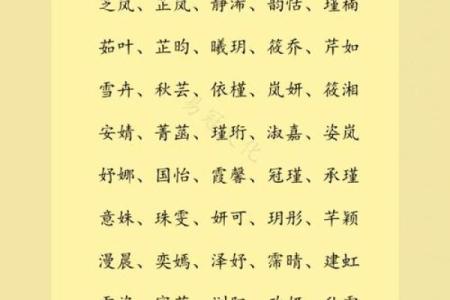 芝岚、芷岚、静浠、韵恬、瑾楠
茹叶、芷昀、曦玥、筱乔、芹如
雪卉、秋芸、依槿、岚妍、筱湘
安婧、菁菡、瑾珩、淑嘉、姿岚
妤娜、国怡、霞馨、冠瑾、承瑾
意姝、珠雯、妍可、玥彤、芊颖
漫晨、奕嫣、泽妤、霈晴、建虹
易冠文化